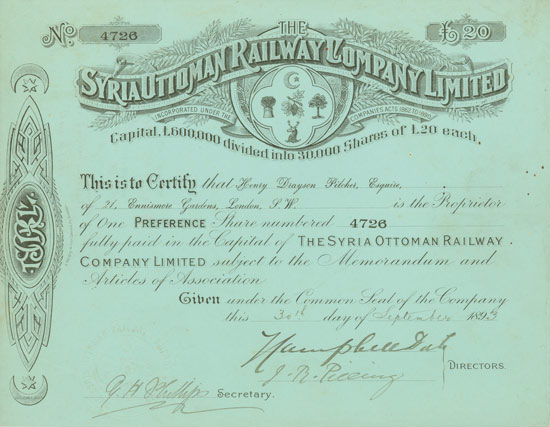 No. 4726
£20
THE
SYRIA OTTOMAN RAILWAY COMPANY LIMITED
INCORPORATED UNDER THE COMPANIES ACTS 1862 TO 1890
Capital, £600,000 divided into 30,000 Shares of £20 each.
This is to Certify that Henry Drayson Pilcher, Esquire,
of 21, Ennismore Gardens, London, S.W. is the Proprietor
of One PREFERENCE Share numbered 4726
fully paid in the Capital of THE SYRIA OTTOMAN RAILWAY
COMPANY LIMITED subject to the Memorandum and
Articles of Association.
Given under the Common Seal of the Company
this 30th day of September 1893
DIRECTORS.
G H Phillips Secretary.